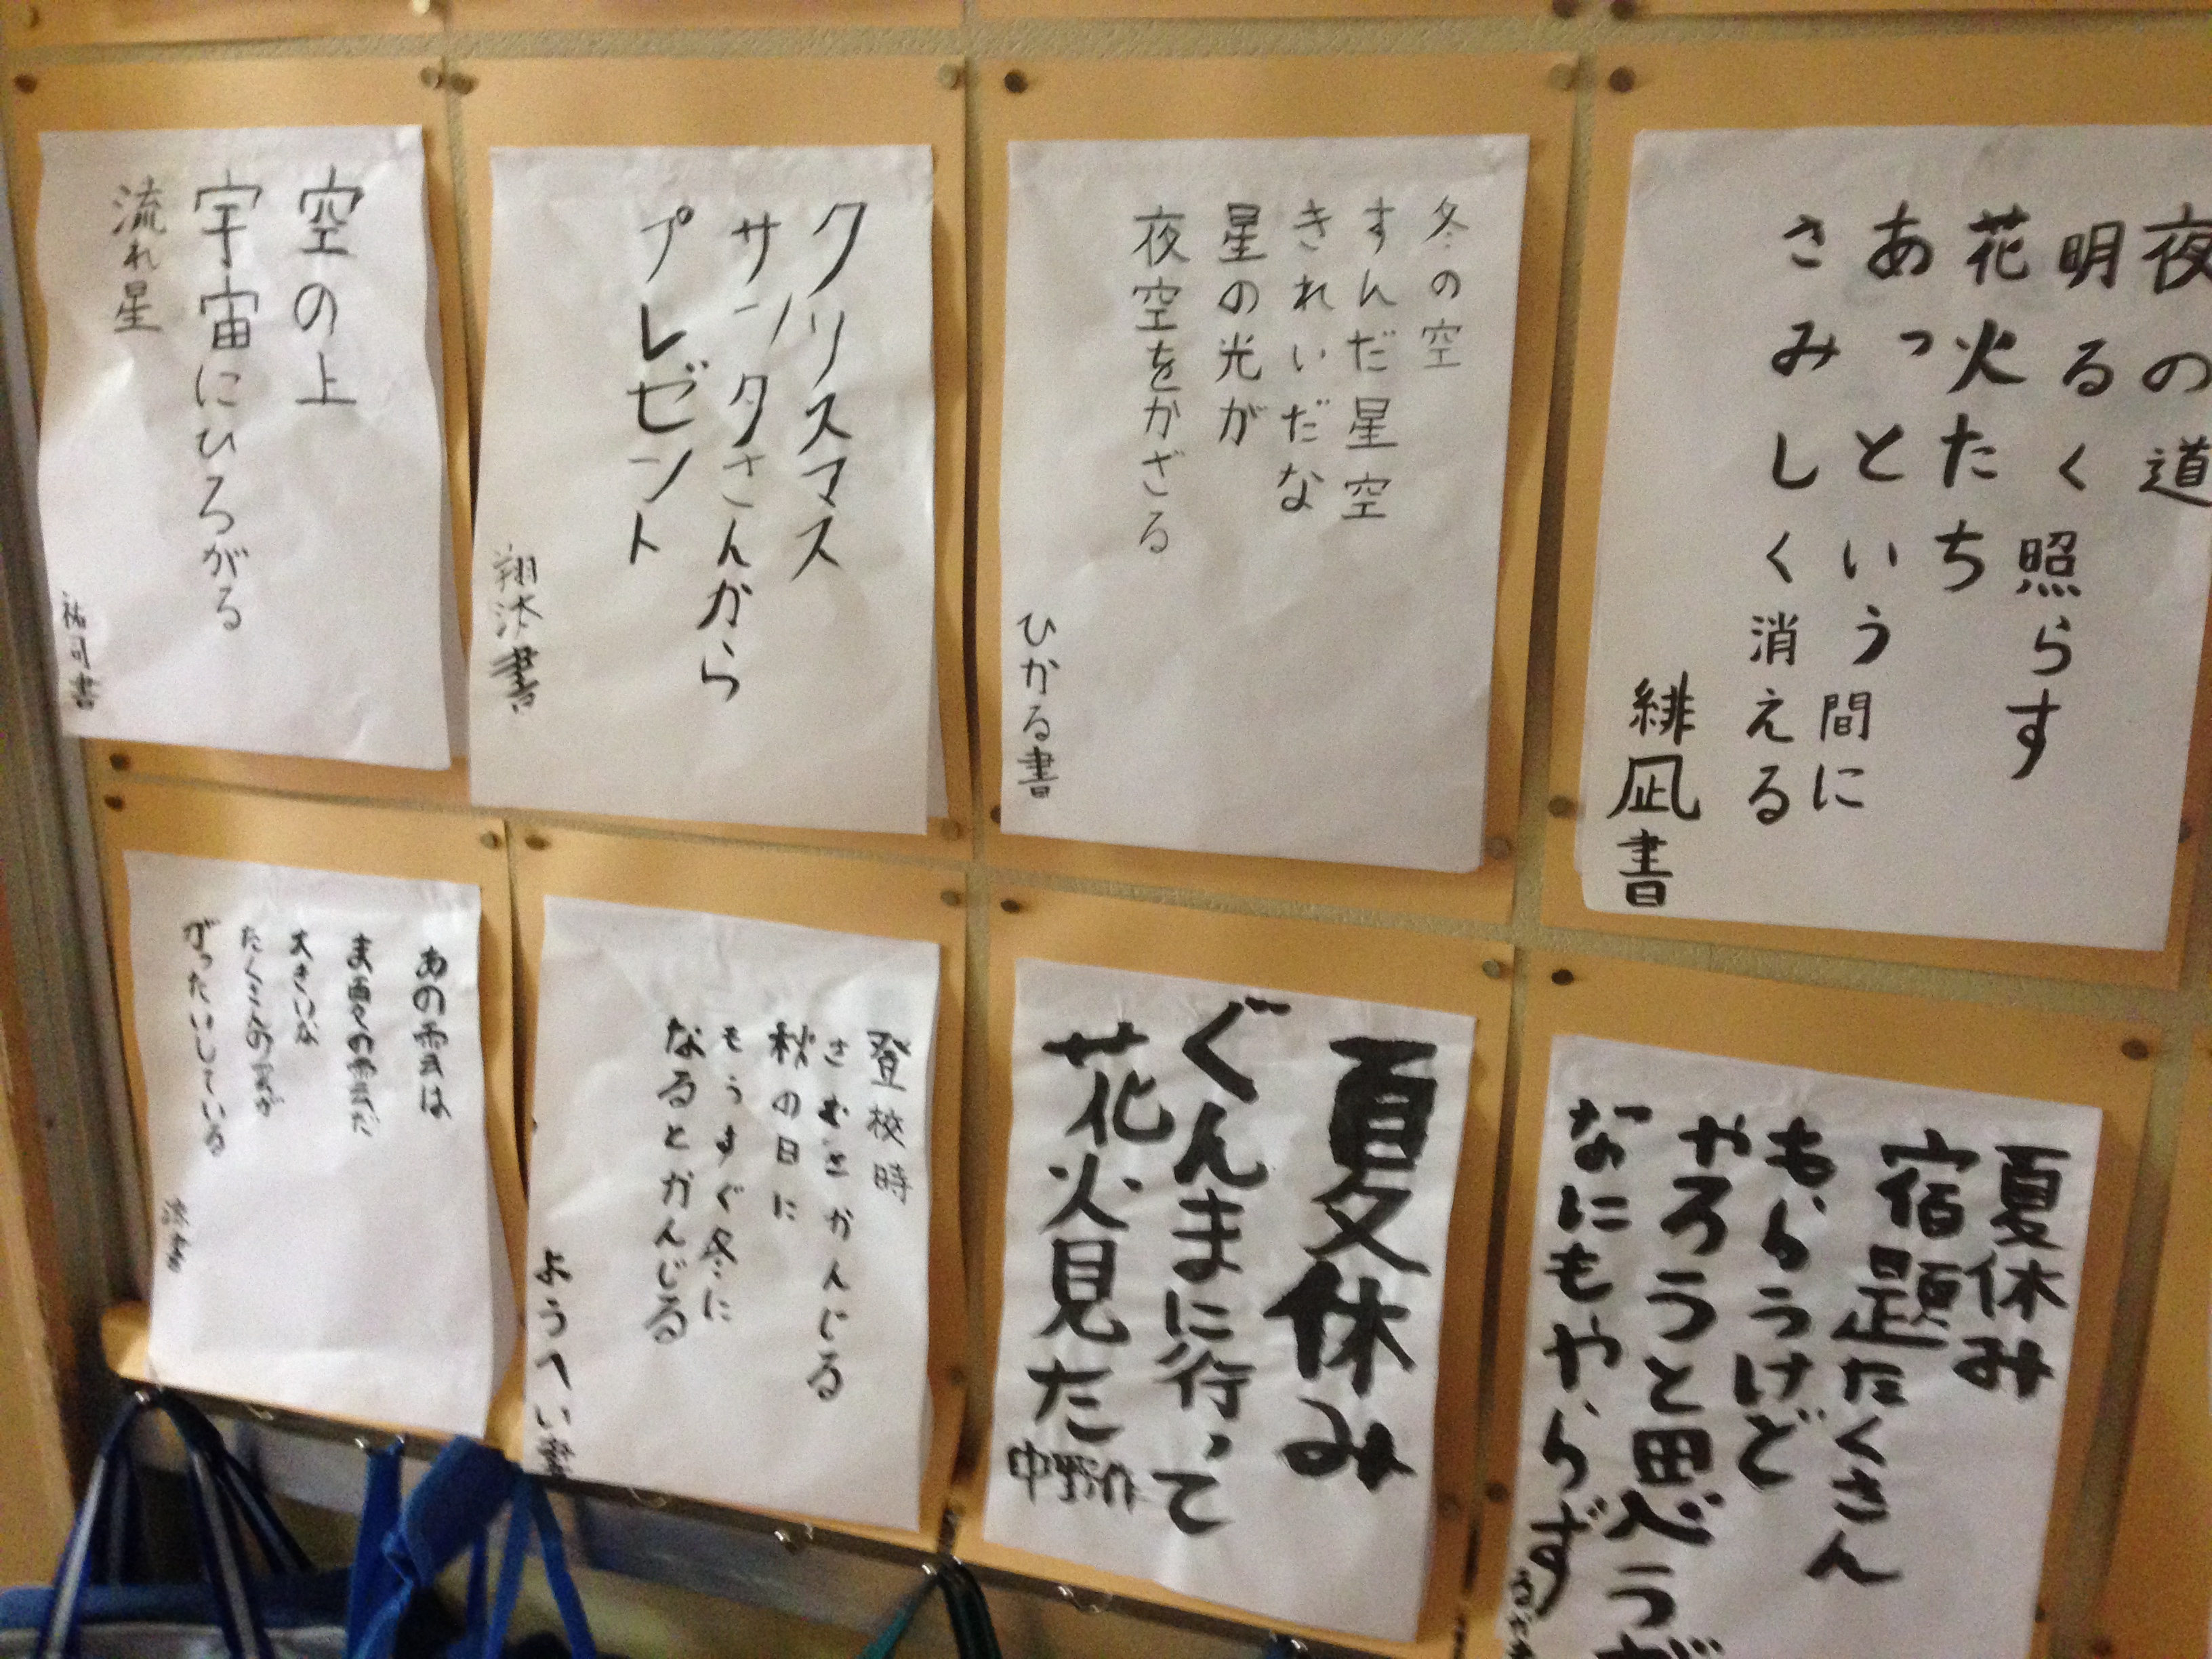 空の上
宇宙にひろがる
流れ星
祐司書
クリスマス
サンタさんから
プレゼント
書
冬の空
すんだ星空
きれいだな
星の光が
夜空をかざる
ひかる書
夜の道
明るく照らす
花火たち
あっという間に
さみしく消える
緋凪書
あの雲は
真夏の雲だ
大きいな
たくさんの雲が
がったいしている
書
登校時
さむさかんじる
秋の日に
もうすぐ冬に
なるとかんじる
ようへい書
夏休み
ぐんまに行って
花火見た
中野作
夏休み
宿題たくさん
もらうけど
やろうと思うが
なにもやらず